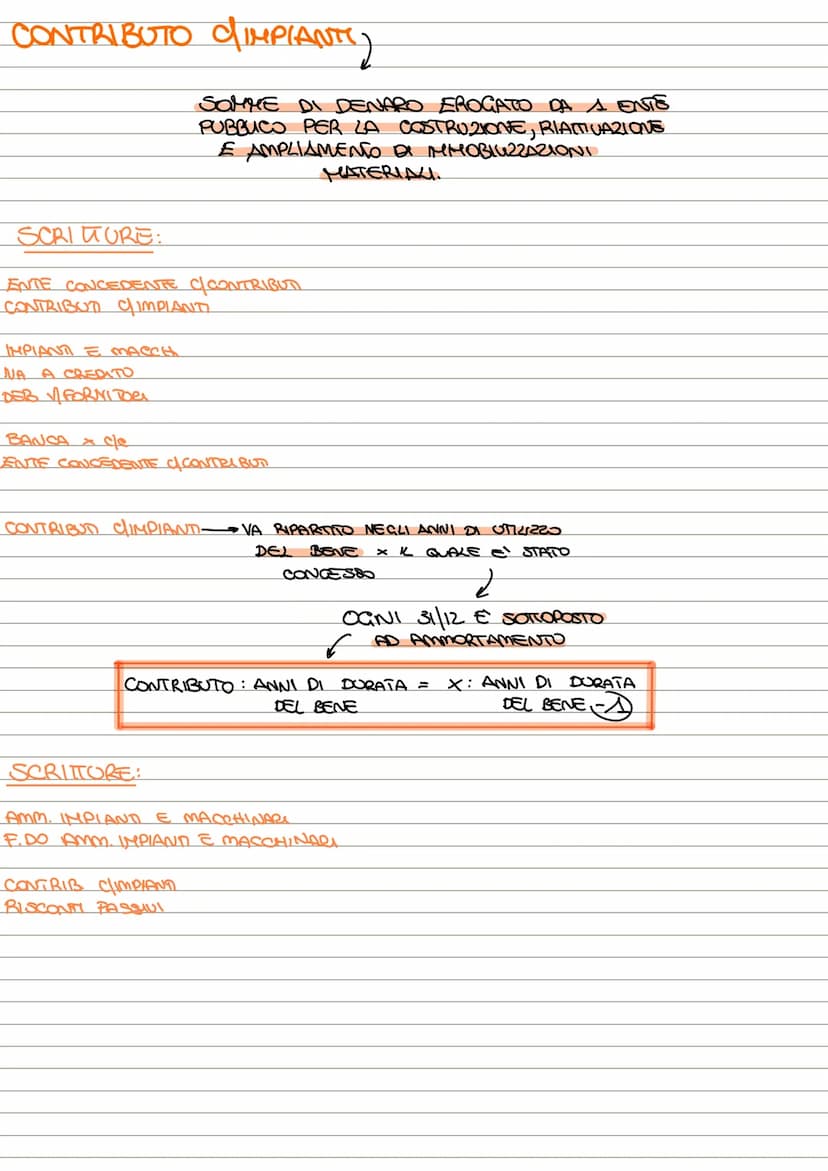 CONTRIBUTO C/IMPIANTI
SOMME DI DENARO EROGATO DA 1 ENTE
PUBBLICO PER LA COSTRUZIONE, RIATTIVAZIONE
E AMPLIAMENTO DI IMMOBILIZZAZIONI
MATERIALI.
SCRITTURE:
ENTE CONCEDENTE C/CONTRIBUTI
CONTRIBUTI C/IMPIANTI
IMPIANTI E MACCH.
IVA A CREDITO
DEB V/FORNITORI
BANCA X C/C
ENTE CONCEDENTE C/CONTRIBUTI
CONTRIBUTI C/IMPIANTI → VA RIPARTITO NEGLI ANNI DI UTILIZZO
DEL BENE X IL QUALE E' STATO
CONCESSO
OGNI 31/12 È SOTTOPOSTO
AD AMMORTAMENTO
CONTRIBUTO : ANNI DI DURATA = X : ANNI DI DURATA
DEL BENE DEL BENE -1
SCRITTURE:
AMM. IMPIANTI E MACCHINARI
F.DO AMM. IMPIANTI E MACCHINARI
CONTRIB C/IMPIANTI
RISCONTI PASSIVI